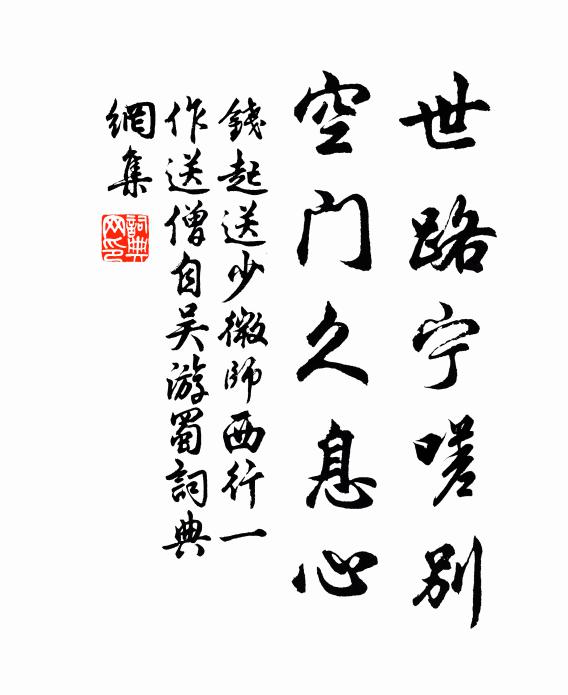 世路宁嗟别
空门久息心
錢起送少微師西行一
作送僧自吴游蜀詞典
網集
詞典
网印